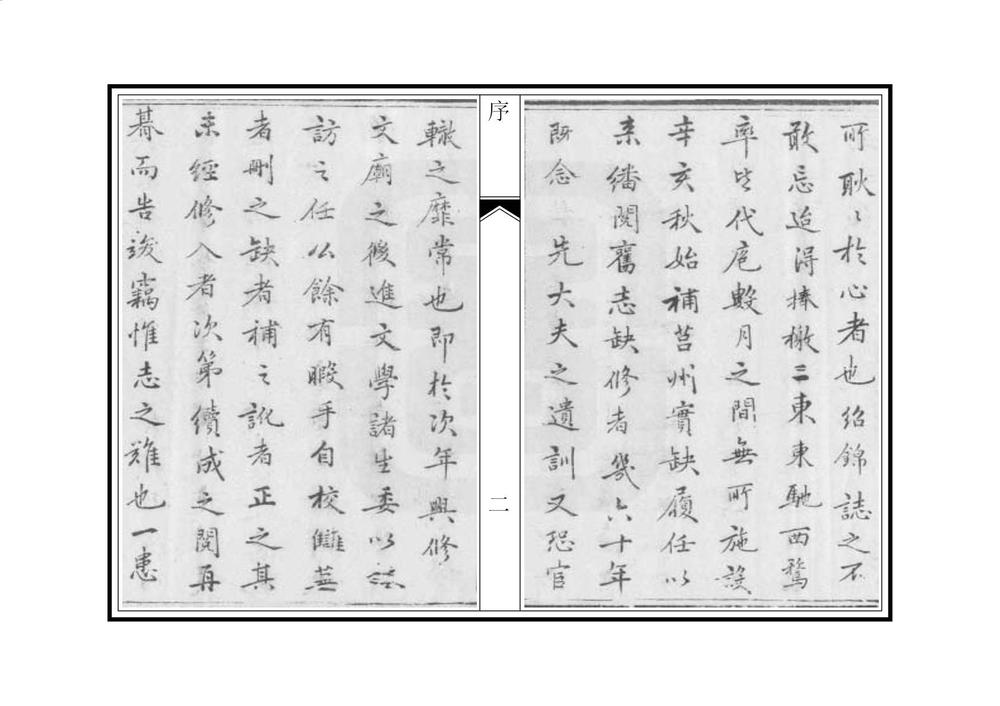 所耿〻於心者也紹錦誌之不
敢忘迨得捧檄二東東馳西騖
率皆代庖數月之間無所施設
辛亥秋始補莒州實缺履任以
来繙閱舊志缺修者幾六十年
既念 先大夫之遺訓又恐官
序
二
轍之靡常也即於次年興修
文廟之後進文學諸生委以採
訪之任公餘有暇手自校讎蕪
者刪之缺者補之訛者正之其
未經修入者次第續成之閱再
朞而告竣竊惟志之難也一患